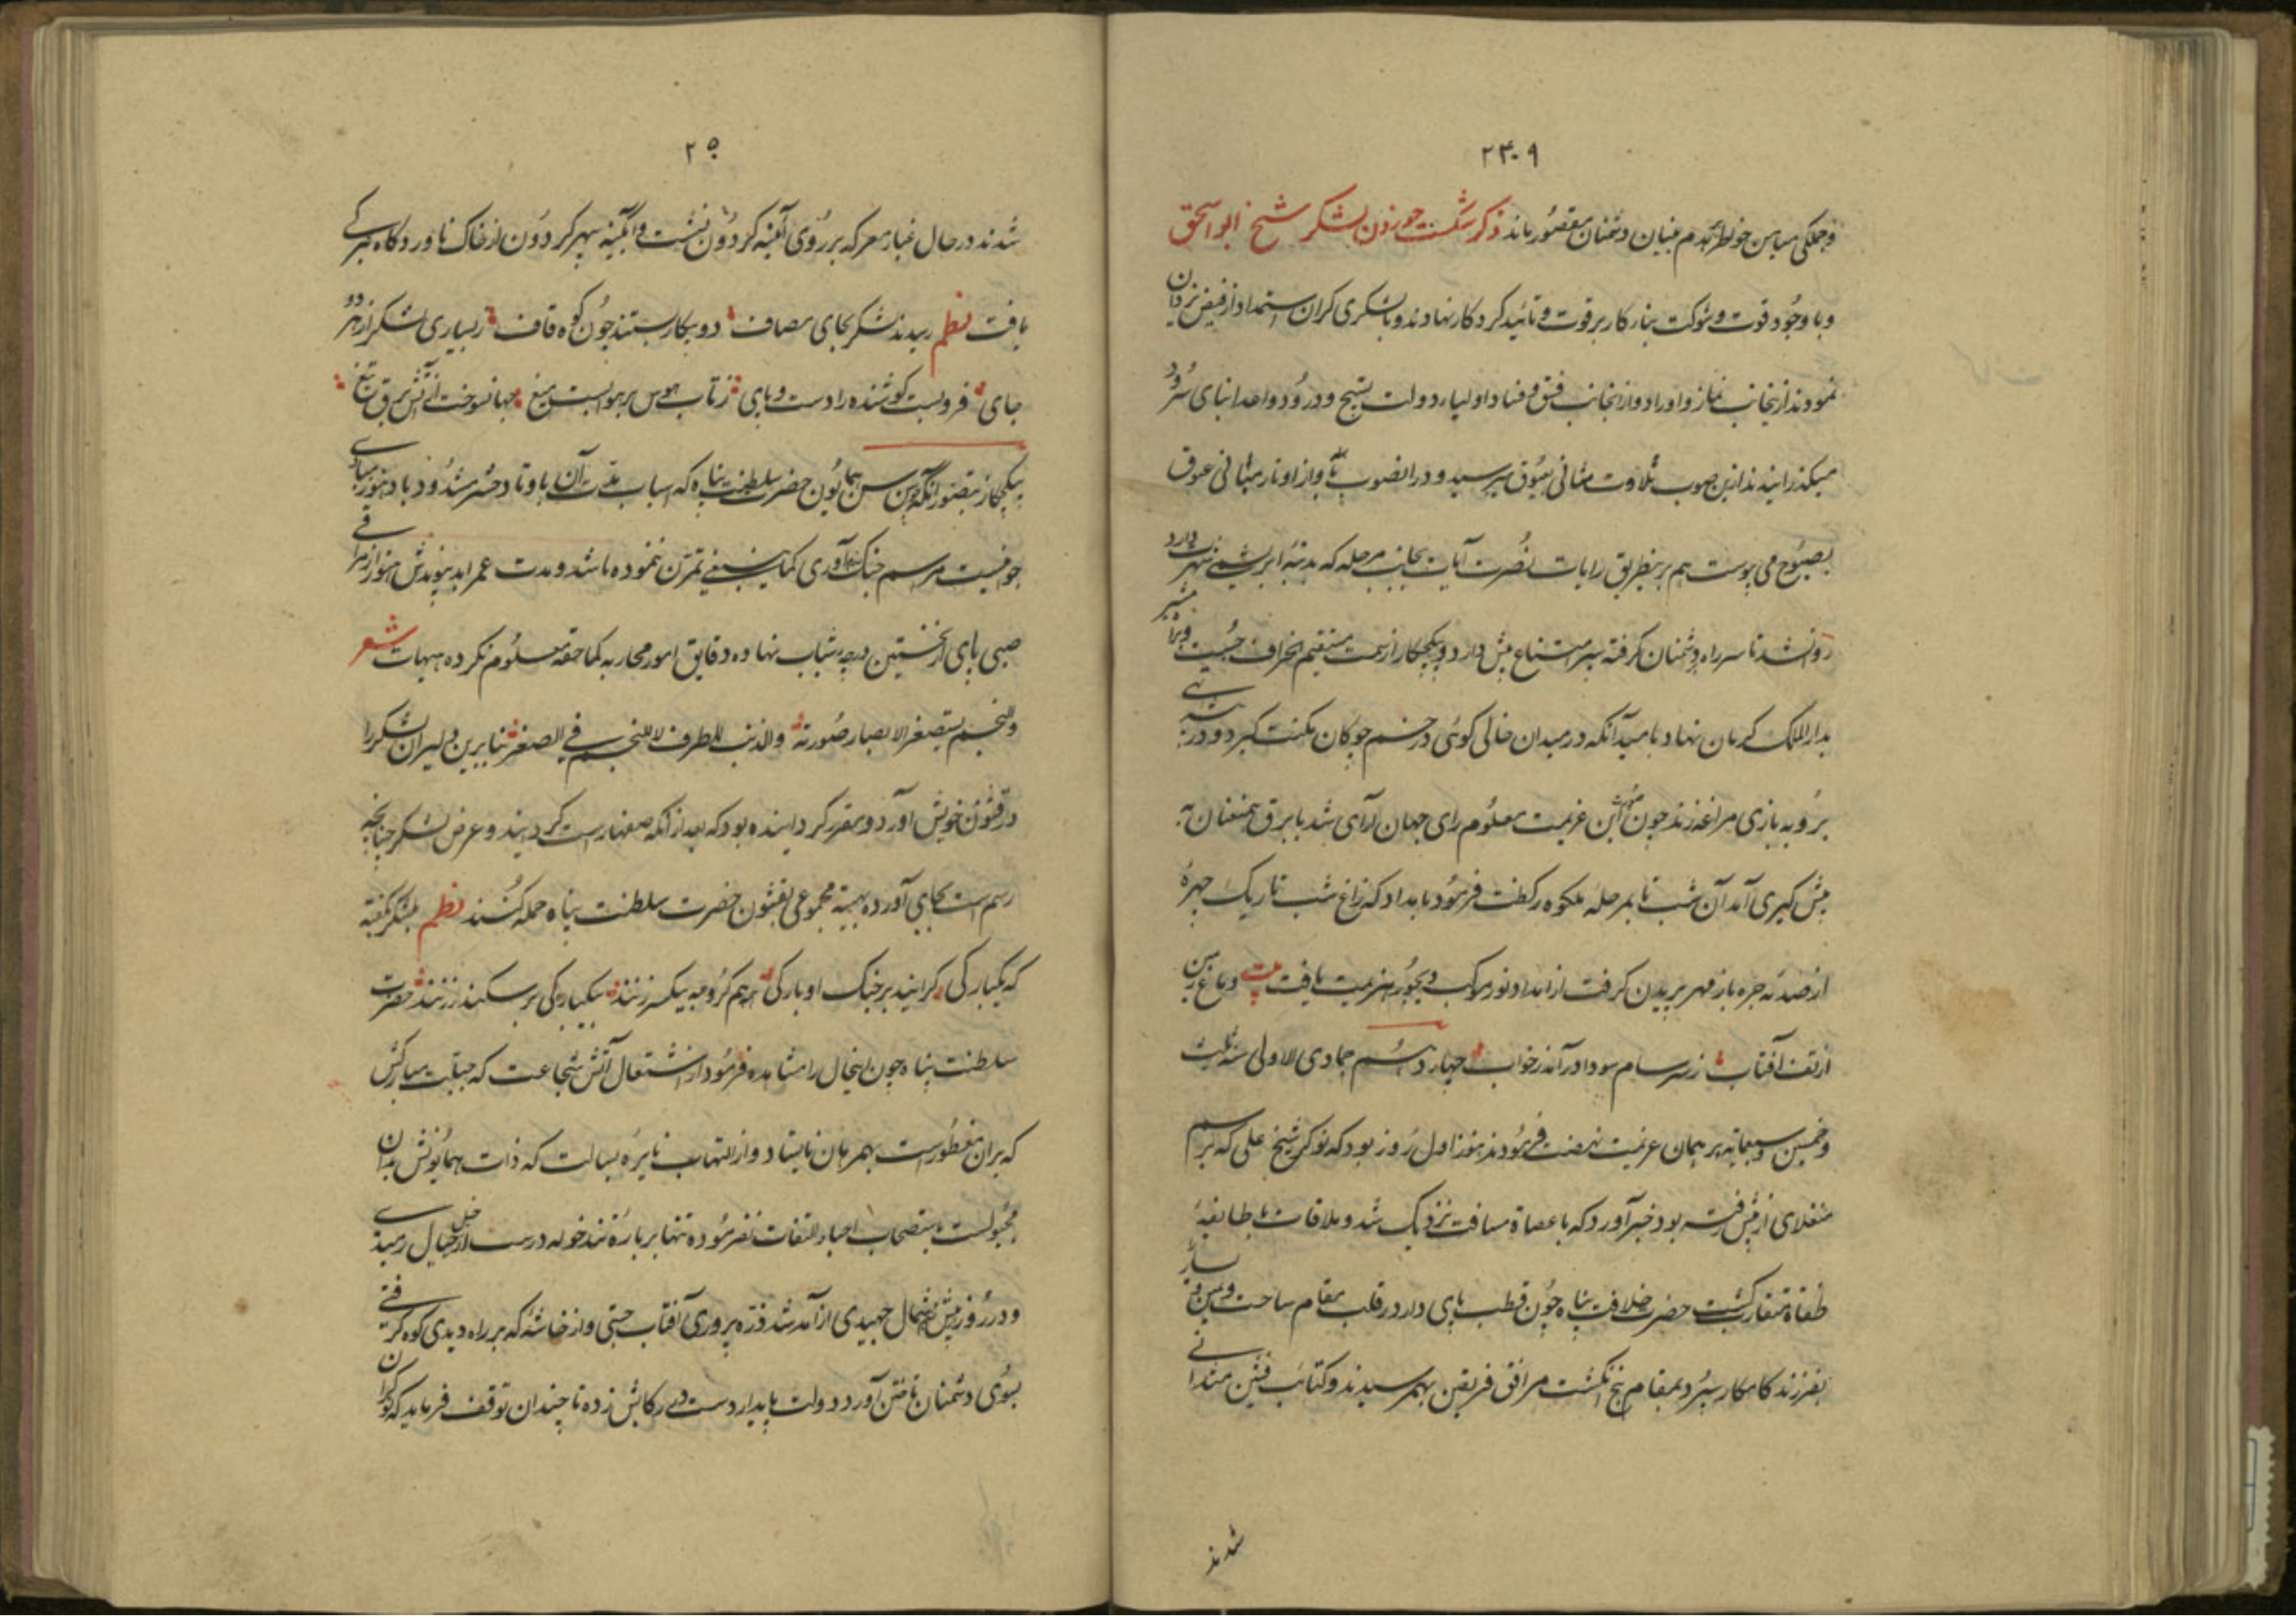 ۲۴۰۹
و جملگی میامن خواطر بهدم بنیان دشمنان مقصور ماند ذکر شکست خوردن لشکر شیخ ابو اسحق
و با وجود قوت و شوکت بناء کار بر قوت و تائید کردکار نهادند و با لشکری کران استمداد از فیض یزدان
نمودند از ینجانب نماز و اوراد و از انجانب فسق و فساد اولیاء دولت بتسبیح و درود و اعدا بنای سرود
میکذرانیدند ازین صوب تلاوت مثانی بعیوق میرسید و در انصوب آواز اوتار مثانی غبوق
بصبوح می پیوست هم برینطریق رایات نصرت آیات بجانب مرحله که بدنبه ابریشمی شهرت دارد
روانشد تا سر راه دشمنان کرفته سپر امتناع پیش دارد و بیکجکار از سمت مستقیم انحراف جست و براه
بدار الملک کرمان نهاد بامید آنکه در میدان خالی کوئی در خم چوکان مکنت کیرد و در
بروبه بازی مراغه زند چون این عزیمت معلوم رای جهان آرای شد با برق همعنان به
پیش کیری آمد آن شب تا بمرحله ملکوه رکضت فرمود بامداد که زاغ شب تاریک چهره
از صدمه جره باز مهر پریدن کرفت از امداد نور موکب دیجور هزیمت یافت بیت دماغ زمین
از تف آفتاب ز سرسام سودا در آمد ز خواب چهاردهم جمادی الاولی سنه ثلث
و خمسین و سبعمایه بر همان عزیمت نهضت فرمودند هنوز اول روز بود که نوکر شیخ علی که برسم
منقلای از پیش رفته بود خبر آورد که با عصاة مسافت نزدیک شد و ملاقات با طایفه
طغاة متقارب کشت حضرت خلافت پناه چون قطب پای دار در قلب بمقام ساخت و میمن و
بفرزند کامکار سپرد بمقام پنج انکشت مرافق فریقین بهم رسیدند و کتائب فئتین متدانی
شدند
۲۵۰
شدند در حال غبار معرکه بر روی آینه کردون نشست و آبکینه سپهر کردون از خاک ناوردکاه تیرکی
یافت نظم رسیدند لشکر بجای مصاف دو پیکار بستند چون کوه قاف ز بسیاری لشکر از هر دو
جای فرو بست کوشنده را دست و پای ز تاب هوس بر هوا بست میغ جهانسوخت از آتش برق تیغ
بیکجکاز بتصور آنکه چون سن همایون حضرت سلطنت پناه که اسباب مدت آن باوتاد حشر مشدود باد هنوز مبادی
جوانیست مراسم جنک آوری کما ینبغی تمرن ننموده باشد و مدت عمر ابد پیوندش هنوز از مراقی
صبی پای از نخستین درجه شباب نهاده دقایق امور محاربه کما حقه معلوم نکرده هیهات شعر
والنجم یستصغر الابصار صورته والذنب للطرف لا للنجم فی الصغر بنابرین دلیران لشکر را
در قشون خویش آورد و مقرر کردانیده بود که بعد از آنکه صفها راست کردند و عرض لشکر چنانچه
رسم است بجای آورده بهیئة مجموعی بقشون حضرت سلطنت پناه حمله کنند نظم بلشکر بکفته
که یکبارکی کرایند بر جنک او بارکی بر هم کروهه بیکسر زنند بیکبارکی بر سکندر زنند حضرت
سلطنت پناه چون اینحال را مشاهده فرمود از اشتعال آتش شجاعت که جبلت مبارکش
که بران مفطورست بهمرهان نایستاد و از التهاب نایره بسالت که ذات همایونش بدان
مجبولست باستصحاب اجناد التفات نفرموده تنها بر باره تند خو که درست از خیل خیال رمیدی
و در روز پیش شمال جهیدی از آمد شد ذره پروری آفتاب جستی و از خاشه که بر راه دیدی کوه کرفتی
بسوی دشمنان تاختن آورد دولت پایدار دست در رکابش زده تا چندان توقف فرماید که کران